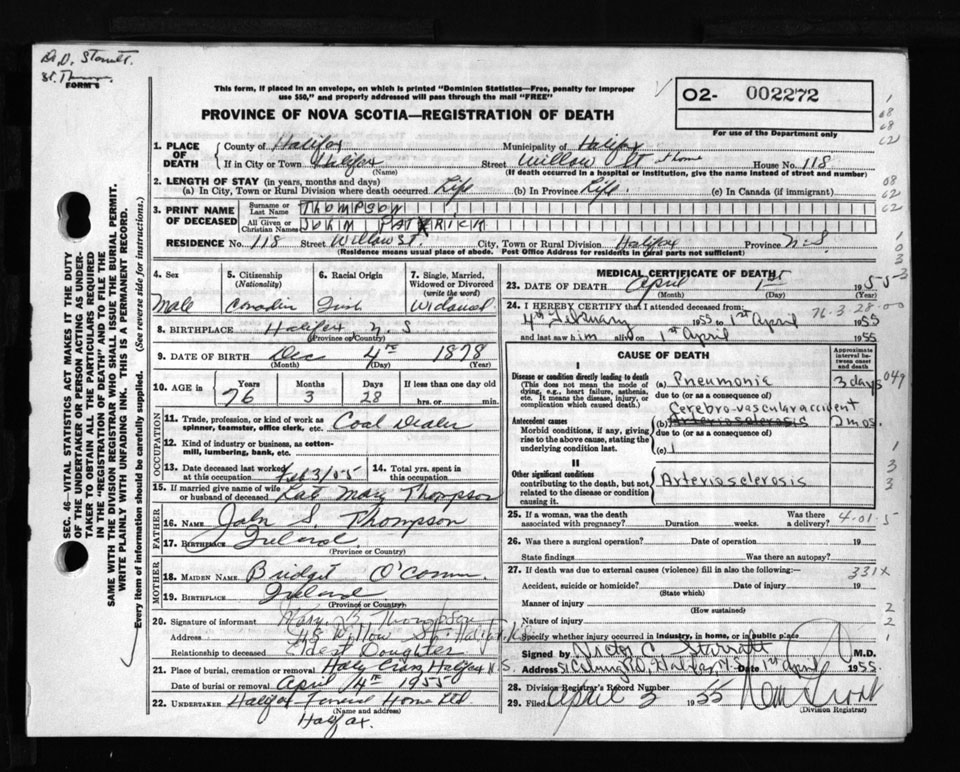 FORM 1
This form, if placed in an envelope, on which is printed "Dominion Statistics—Free, penalty for improper
use $50," and properly addressed will pass through the mail "FREE"
PROVINCE OF NOVA SCOTIA—REGISTRATION OF DEATH
02- 002272
For use of the Department only
1. PLACE OF DEATH
County of Halifax Municipality of Halifax
If in City or Town Halifax Street Willow St home House No. 118
(Name) (If death occurred in a hospital or institution, give the name instead of street and number)
2. LENGTH OF STAY (in years, months and days)
(a) In City, Town or Rural Division where death occurred Life (b) In Province Life. (c) In Canada (if immigrant)
3. PRINT NAME OF DECEASED
Surname or Last Name THOMPSON
All Given or Christian Names JOHN PATRICK
RESIDENCE No. 118 Street Willow St. City, Town or Rural Division Halifax Province N.S
(Residence means usual place of abode. Post Office Address for residents in rural parts not sufficient)
4. Sex Male
5. Citizenship (Nationality)
6. Racial Origin Irish
7. Single, Married, Widowed or Divorced (write the word) Widowed
8. BIRTHPLACE Halifax, N.S
(Province or Country)
9. DATE OF BIRTH Dec 4th 1878
(Month) (Day) (Year)
10. AGE in Years 76 Months 3 Days 28 If less than one day old hrs. or min.
OCCUPATION
11. Trade, profession, or kind of work as spinner, teamster, office clerk, etc. Coal Dealer
12. Kind of industry or business, as cotton-mill, lumbering, bank, etc.
13. Date deceased last worked at this occupation Feb 3/55 14. Total yrs. spent in this occupation
15. If married give name of wife or husband of deceased Kate Mary Thompson
FATHER
16. NAME John S. Thompson
17. BIRTHPLACE Ireland.
(Province or Country)
MOTHER
18. MAIDEN NAME Bridget
19. BIRTHPLACE Ireland
(Province or Country)
20. Signature of informant Mary B Thompson
Address 118 Willow St. Halifax N.S
Relationship to deceased Eldest Daughter
21. Place of burial, cremation or removal Holy Cross, Halifax N.S.
Date of burial or removal April 4th 1955
22. UNDERTAKER Halifax Funeral Home Ltd
(Name and address)
Halifax.
MEDICAL CERTIFICATE OF DEATH
23. DATE OF DEATH April 1st 1955
(Month) (Day) (Year)
76-3-28-00
24. I HEREBY CERTIFY that I attended deceased from
4th February 1955 to 1st April 1955
and last saw him alive on 1st April 1955
CAUSE OF DEATH
Approximate interval between onset and death
I
Disease or condition directly leading to death
(This does not mean the mode of dying, e.g., heart failure, asthenia, etc. It means the disease, injury, or complication which caused death.)
(a) Pneumonia 3 days
due to (or as a consequence of)
Antecedent causes
Morbid conditions, if any, giving rise to the above cause, stating the underlying condition last.
Cerebro-vascular accident
(b) Arteriosclerosis 2 mos.
due to (or as a consequence of)
(c)
II
Other significant conditions
contributing to the death, but not related to the disease or condition causing it.
Arteriosclerosis
25. If a woman, was the death associated with pregnancy? Duration weeks. Was there a delivery? 4-01-5
26. Was there a surgical operation? Date of operation 19
State findings Was there an autopsy?
27. If death was due to external causes (violence) fill in also the following:
331X
Accident, suicide or homicide? Date of injury 19
(State which)
Manner of injury
(How sustained)
Nature of injury
Specify whether injury occurred in industry, in home, or in public place
Signed by Victor C. Starratt M.D.
Address Halifax, N.S. Date 1st April 1955
28. Division Registrar's Record Number
29. Filed April 5 1955
(Division Registrar)
SEC. 46—VITAL STATISTICS ACT MAKES IT THE DUTY
OF THE UNDERTAKER OR PERSON ACTING AS UNDER-
TAKER TO OBTAIN ALL THE PARTICULARS REQUIRED
IN THE "REGISTRATION OF DEATH" AND TO FILE THE
SAME WITH THE DIVISION REGISTRAR WHO SHALL ISSUE THE BURIAL PERMIT.
WRITE PLAINLY WITH UNFADING INK. THIS IS A PERMANENT RECORD.
Every item of information should be carefully supplied. (See reverse side for instructions.)